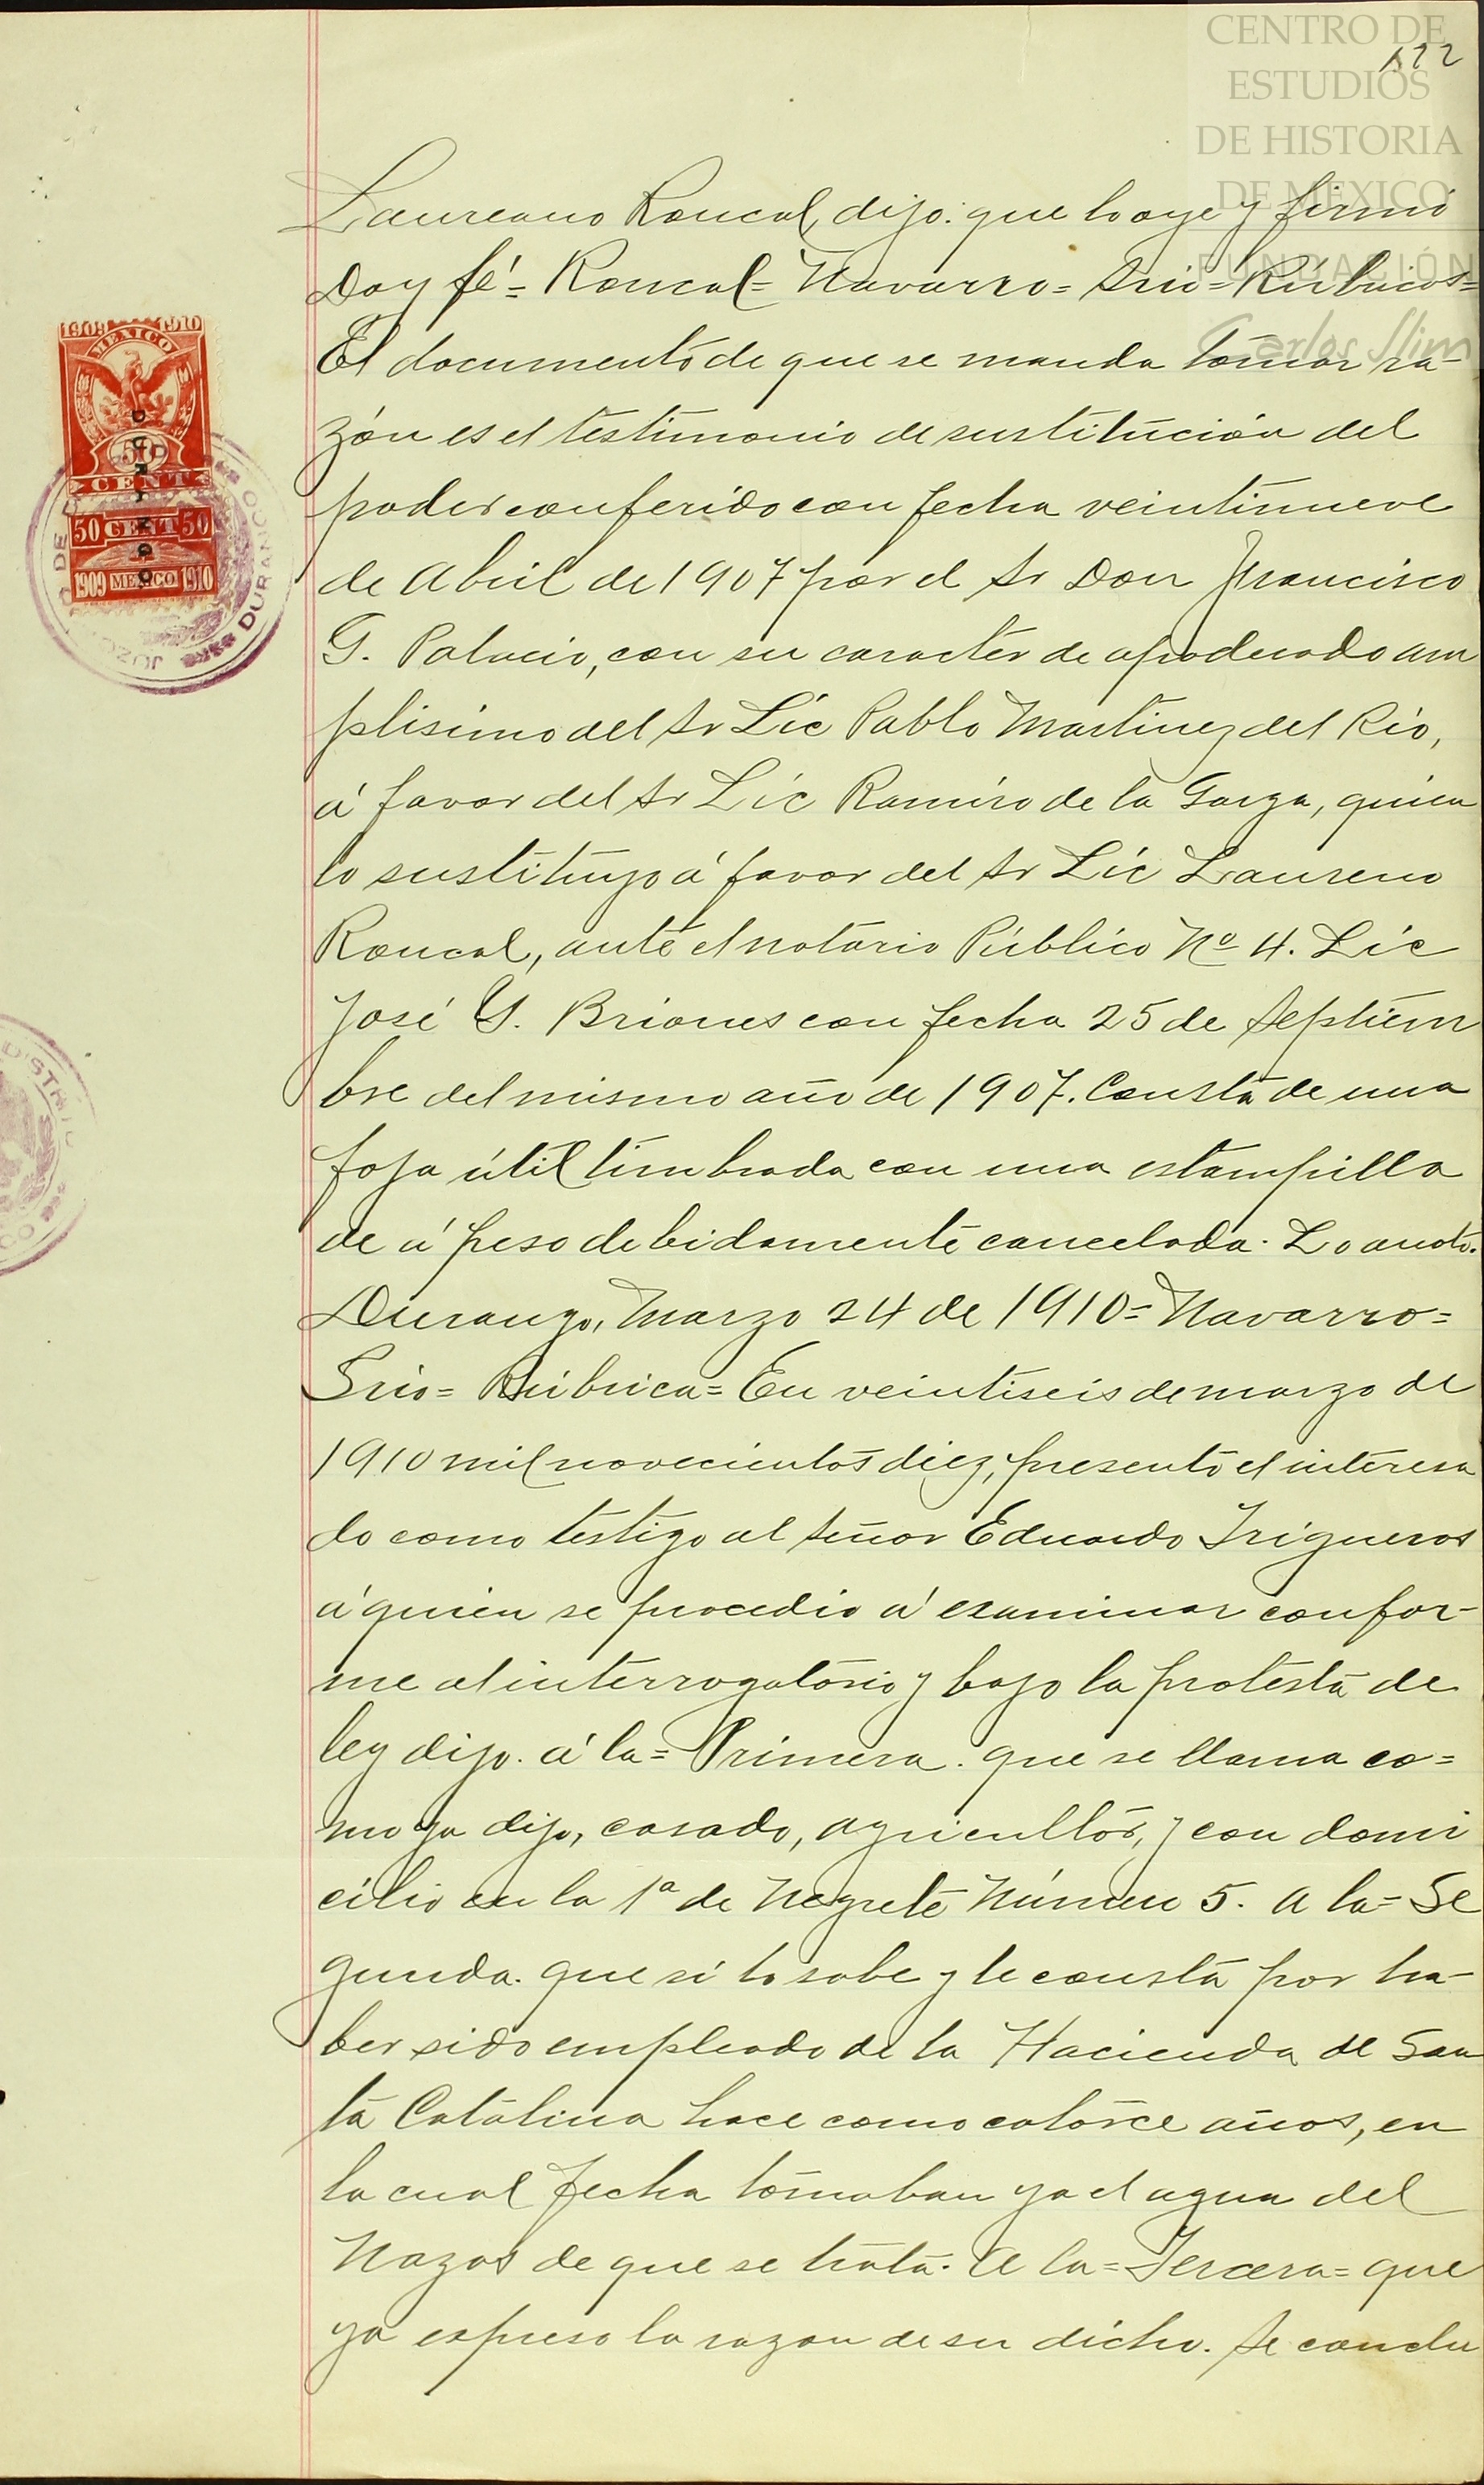 CENTRO DE
ESTUDIOS
DE HISTORIA
DE MEXICO
FUNDACIÓN
Carlos Slim
122
Laureano Roncal, dijo: que lo oye y firmó
Doy fé= Roncal= Navarro= Srio= Rúbricas=
El documento de que se manda tomar ra-
zón es el testimonio de sustitución del
poder conferido con fecha veintinueve
de Abril de 1907 por el Sr Don Francisco
G. Palacio, con su caracter de apoderado am
plísimo del Sr Lic Pablo Martinez del Rio,
á favor del Sr Lic Ramiro de la Garza, quien
lo sustituyo á favor del Sr Lic Laureno
Roncal, ante el notario Público No 4. Lic
José G. Briones con fecha 25 de Septiem
bre del mismo año de 1907. Consta de una
foja útil timbrada con una estampilla
de á peso debidamente cancelada. Lo anoto.
Durango, Marzo 24 de 1910= Navarro=
Srio= Rúbrica= En veintiseis de marzo de
1910 mil novecientos diez, presentó el interesa
do como testigo al Señor Eduardo Trigueros
á quien se procedió á examinar confor-
me al interrogatorio y bajo la protesta de
ley dijo. á la= Primera. que se llama co=
mo ya dijo, casado, agricultor, y con domi
cilio en la 1a de Negrete Número 5. A la= Se
gunda. que sí lo sabe y le consta por ha-
ber sido empleado de la Hacienda de San
ta Catalina hace como catorce años, en
la cual fecha tomaban ya el agua del
Nazas de que se trata. A la= Tercera= que
ya expreso la razon de su dicho. Se conclu
1909 1910
MEXICO
50
CENT
50 CENT 50
1909 MEXICO 1910
DURANGO